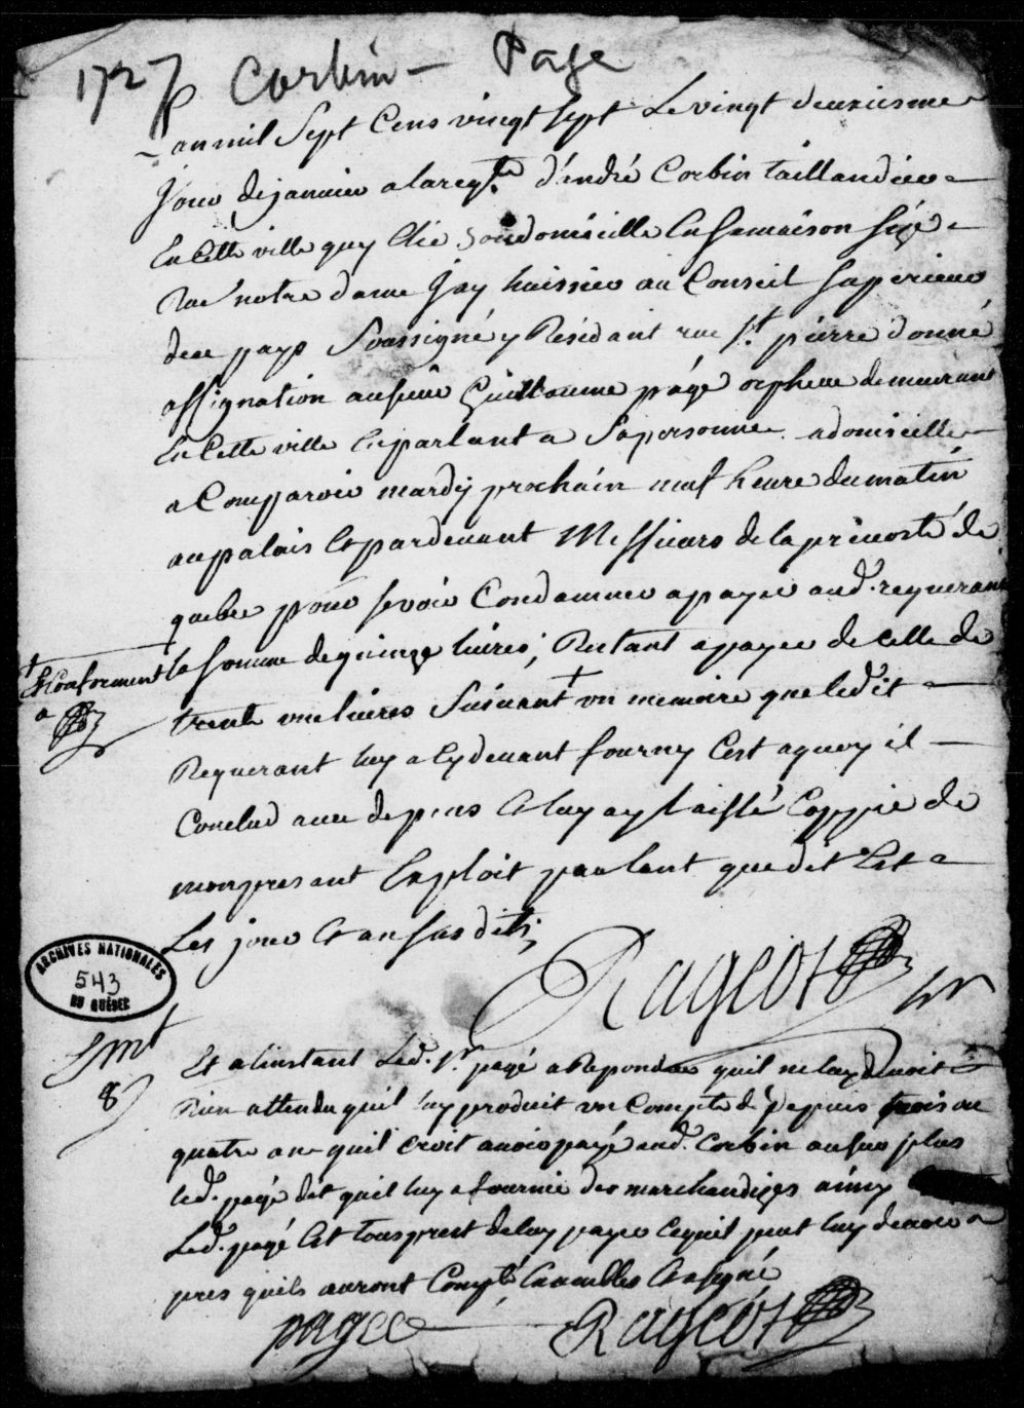 1727 Corbin - Page
an mil Sept Cens vingt sept Le vingt deuxiesme
Jour de janvier a la reqte d'endré Corbin taillandier
En cette ville quy Elie son domicille En sa maison size
Rue notre dame Jay huissier au Conseil Superieur
de ce pays Soussigné y Residant rue St. pierre donné
assignation au sieur Guillaume pagé orpheuvre demeurant
En Cette ville En parlant a Sa personne a domicille
a Comparoir mardy prochain neuf heure du matin
au palais Et pardevant Messieurs de la prevosté de
quebec pour se voir Condamner a payer aud. requerant
la somme de quinze livres; Restant a payer de celle de
trente une livres Suivant + un memoire que ledit
Requerant luy a Cy devant fourny Cest a quoy il
Conclud avec depens Et luy ay laissé Coppie de
mon presant Exploit parlant que dit Est
Les jour Et an susdits,
+ Et Conforment
a
Rageot
hr
ARCHIVES NATIONALES
543
DU QUÉBEC
8
Et a linstant Led. Sr. pagé a Repondu quil ne luy devoit
Rien attendu quil luy produit un Compte de depuis trois ou
quatre ans quil croit avoir payé aud. Corbin au surplus
led. pagé dit quil luy a fournie des marchandizes ainsy
Led. pagé Est tous prest de luy payer Ce quil peut luy devoir a
pres quils auront Compté Ensembles Et a signé
pagee
Rageot